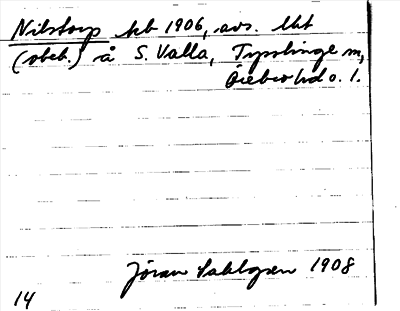 Nilstorp kb 1906, avs. lht
(obeb.) å S. Valla, Tysslinge sn,
Örebro hd o. l.
Jöran Sahlgren 1908
14